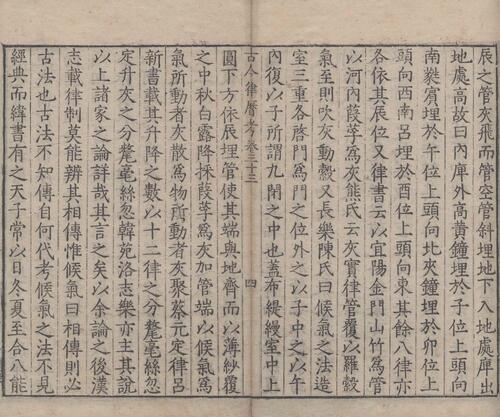 辰之管灰飛而管空管斜埋地下入地處庳出
地處高故曰內庫外高黃鐘埋於子位上頭向
南蕤賓埋於午位上頭向北夾鐘埋於卯位上
頭向西南呂埋於酉位上頭向東其餘八律亦
各依其辰位又律書云以宜陽金門山竹為管
以河內葭莩為灰熊氏云灰實律管覆以羅縠
氣至則吹灰動縠又長樂陳氏曰候氣之法造
室三重各啓門為門之位外之以子中之以午
內復以子所謂九閉之中也蓋布緹縵室中上
古今律曆考卷三十三 四
圓下方依辰埋管使其端與地齊而以薄紗覆
之中秋白露降採葭莩為灰加管端以候氣為
氣所動者灰散為物所動者灰聚蔡元定律呂
新書載其升降之數以十二律之分釐毫絲忽
定升灰之分釐毫絲忽韓苑洛志樂亦主其說
以上諸家之論詳哉其言之矣以余論之後漢
志載律制莫能辨其相傳惟候氣曰相傳則必
古法也古法不知傳自何代考候氣之法不見
經典而緯書有之天子常以日冬夏至合八能